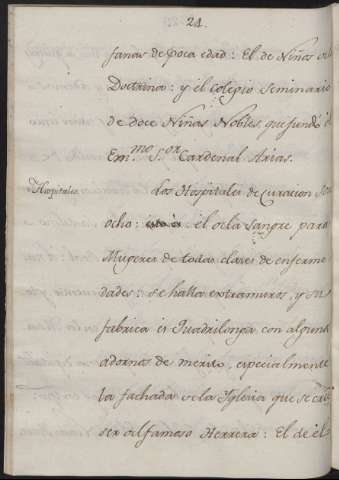 24.
fanas de poca edad: El de Niñas de la
Doctrina: y el colegio seminario
de doce Niñas Nobles, que fundó el
Em.mo S.or Cardenal Arias.
Hospitales. Los Hospitales de curacion son
ocho: el de la sangre para
Mugeres de todas clases de enferme
dades: se halla extramuros, y su
fabrica es Quadrilonga con algunos
adornos de merito, especialmente
la fachada de la Yglesia que se cree
ser del famoso Herrera: El de el